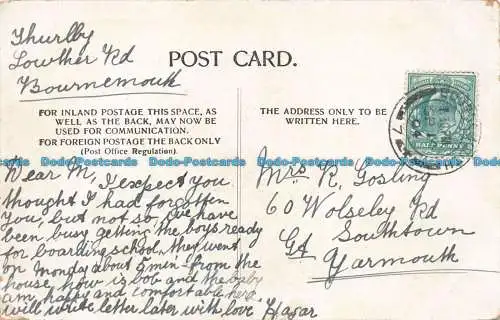 Thurlby
Lowther Rd
Bournemouth
POST CARD.
FOR INLAND POSTAGE THIS SPACE, AS
WELL AS THE BACK, MAY NOW BE
USED FOR COMMUNICATION.
FOR FOREIGN POSTAGE THE BACK ONLY
(Post Office Regulation).
Dear M, I expect you
thought I had forgotten
you, but not so, we have
been busy getting the boys ready
for boarding school. they went
on Monday about 5 min- from the
house, how is bob and the baby
am happy and comfortable here
will write letter later with love Hagar
THE ADDRESS ONLY TO BE
WRITTEN HERE.
Mrs R, Gosling
60 Wolseley Rd
Southtown
Gt Yarmouth
HALFPENNY
Dodo-Postcards Dodo-Postcards Dodo-Postcards Dodo-Postcards